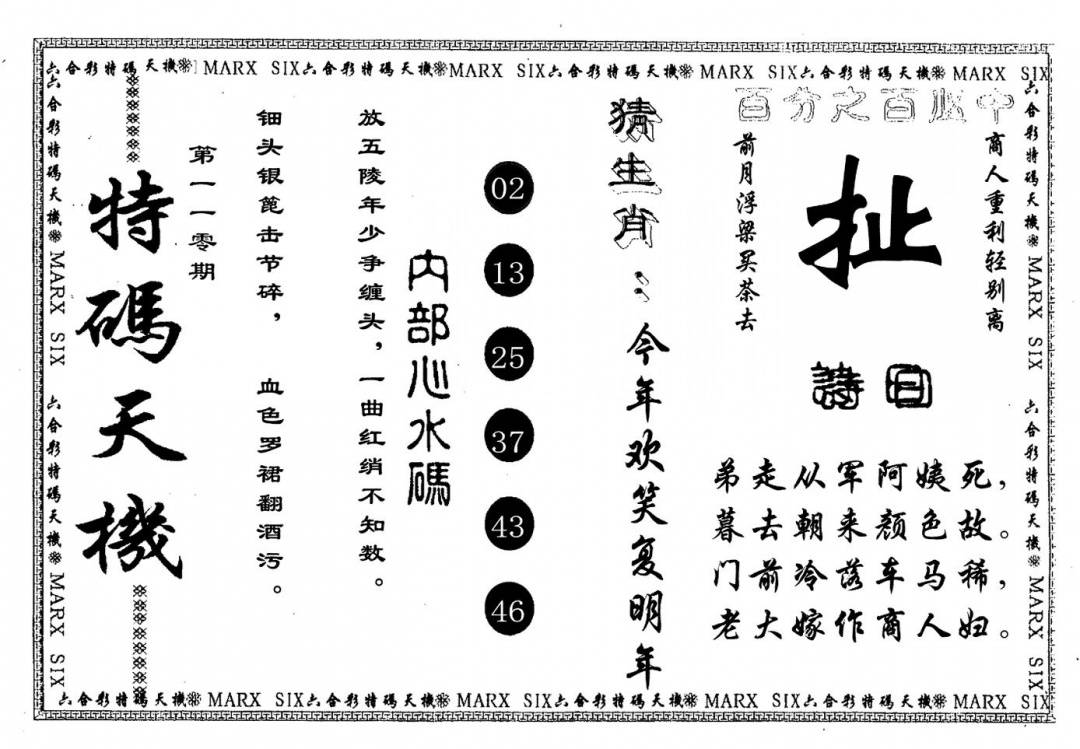 六合彩特碼天機 MARX SIX六合彩特碼天機MARX SIX六合彩特碼天機 MARX SIX六合彩特碼天機 MARX SIX
百分之百必中
商人重利轻别离
扯
前月浮梁买茶去
詩曰
弟走从军阿姨死，
暮去朝来颜色故。
门前冷落车马稀，
老大嫁作商人妇。
猜生肖：今年欢笑复明年
02
13
25
37
43
46
内部心水碼
放五陵年少争缠头，一曲红绡不知数。
钿头银篦击节碎， 血色罗裙翻酒污。
第一一零期
特碼天機
六合彩特碼天機 MARX SIX 六合彩特碼天機 MARX SIX
六合彩特碼天機 MARX SIX 六合彩特碼天機 MARX SIX
六合彩特碼天機 MARX SIX六合彩特碼天機 MARX SIX六合彩特碼天機 MARX SIX六合彩特碼天機 MARX SIX